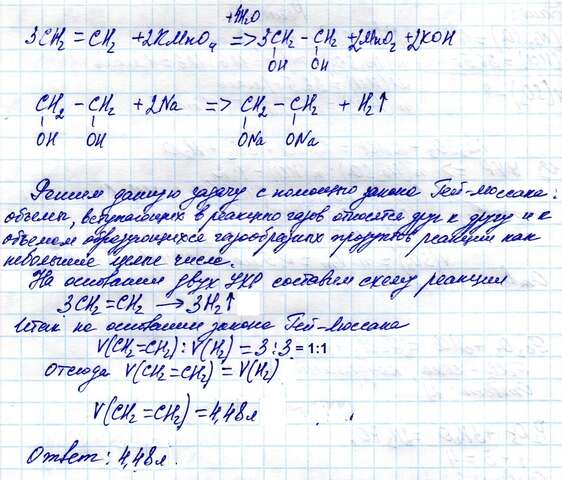 +4H₂O
3CH₂ = CH₂ + 2KMnO₄ => 3CH₂ – CH₂ + 2MnO₂ + 2KOH
OH OH
CH₂ – CH₂ + 2Na => CH₂ – CH₂ + H₂↑
OH OH ONa ONa
Решаем данную задачу с помощью закона Гей-Люссака:
объемы, вступающих в реакцию газов относятся друг к другу и к
объемам образующихся газообразных продуктов реакции как
небольшие целые числа.
На основании двух УХР составим схему реакции
3CH₂ = CH₂ → 3H₂↑
Итак на основании закона Гей-Люссака
V(CH₂=CH₂) : V(H₂) = 3 : 3 = 1:1
Отсюда V(CH₂=CH₂) = V(H₂)
V(CH₂ = CH₂) = 4,48 л
Ответ: 4,48 л.